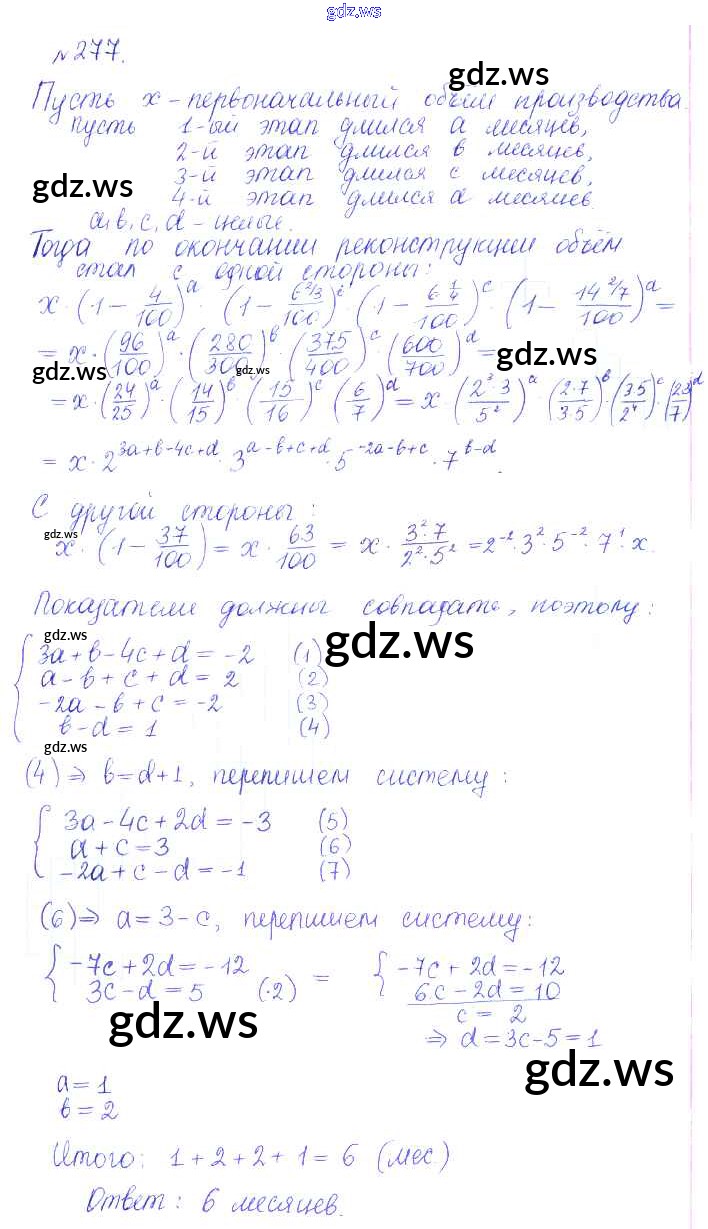 gdz.ws
№277.
gdz.ws
Пусть x - первоначальный объём производства.
пусть 1-ый этап длился a месяцев,
2-й этап длился b месяцев,
3-й этап длился c месяцев,
gdz.ws
4-й этап длился d месяцев.
a, b, c, d - целые.
Тогда по окончании реконструкции объём
стал с одной стороны:
x·(1 - 4/100)^a · (1 - 6 2/3/100)^c · (1 - 6 1/4/100)^c · (1 - 14 2/7/100)^a =
= x·(96/100)^a · (280/300)^b · (375/400)^c (600/700)^d =
gdz.ws
gdz.ws
gdz.ws
= x·(24/25)^a · (14/15)^b · (15/16)^c · (6/7)^d = x·(2^3·3/5^2)^a · (2·7/3·5)^b (3·5/2^4)^c · (2·3/7)^d
= x·2^(3a+b-4c+d) · 3^(a-b+c+d) · 5^(-2a-b+c) · 7^(b-d).
С другой стороны:
gdz.ws
x·(1 - 37/100) = x·63/100 = x·3^2·7/2^2·5^2 = 2^-2·3^2·5^-2·7^1·x.
Показатели должны совпадать, поэтому:
gdz.ws
gdz.ws
3a+b-4c+d = -2 (1)
a-b+c+d = 2 (2)
-2a-b+c = -2 (3)
b-d = 1 (4)
gdz.ws
(4) ⇒ b=d+1, перепишем систему:
3a-4c+2d = -3 (5)
a+c=3 (6)
-2a+c-d = -1 (7)
(6) ⇒ a=3-c, перепишем систему:
{ -7c+2d = -12 = { -7c+2d = -12
3c-d = 5 (·2) 6c-2d = 10
c = 2
gdz.ws
⇒ d=3c-5=1
gdz.ws
a=1
b=2
Итого: 1+2+2+1=6 (мес.)
Ответ: 6 месяцев.